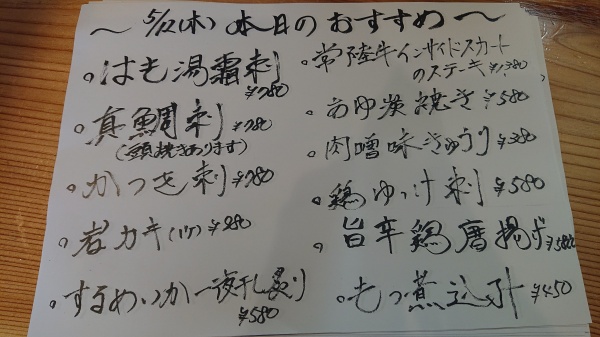 ～5/12(木) 本日のおすすめ～
。はも湯霜刺
¥780
。真鯛刺 ¥780
(頭焼きあります)
。かつを刺 ¥780
。岩カキ(1ケ) ¥380
。するめいか一夜干し炙り
¥580
。常陸牛インサイドスカート
のステーキ ¥1,380
。あゆ炭焼き ¥580
。肉噌味きゅうり ¥380
。鶏ゆっけ刺 ¥580
。旨辛鶏唐揚げ ¥580
。もつ煮込み ¥450